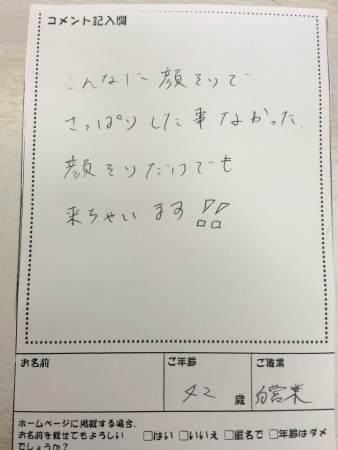 コメント記入欄
こんなに顔そりで
さっぱりした事なかった。
顔そりだけでも
来ちゃいます!!
お名前
ご年齢
ご職業
42 歳
自営業
ホームページに掲載する場合、
お名前を載せてもよろしい
でしょうか?
□はい □いいえ □匿名で □年齢はダメ